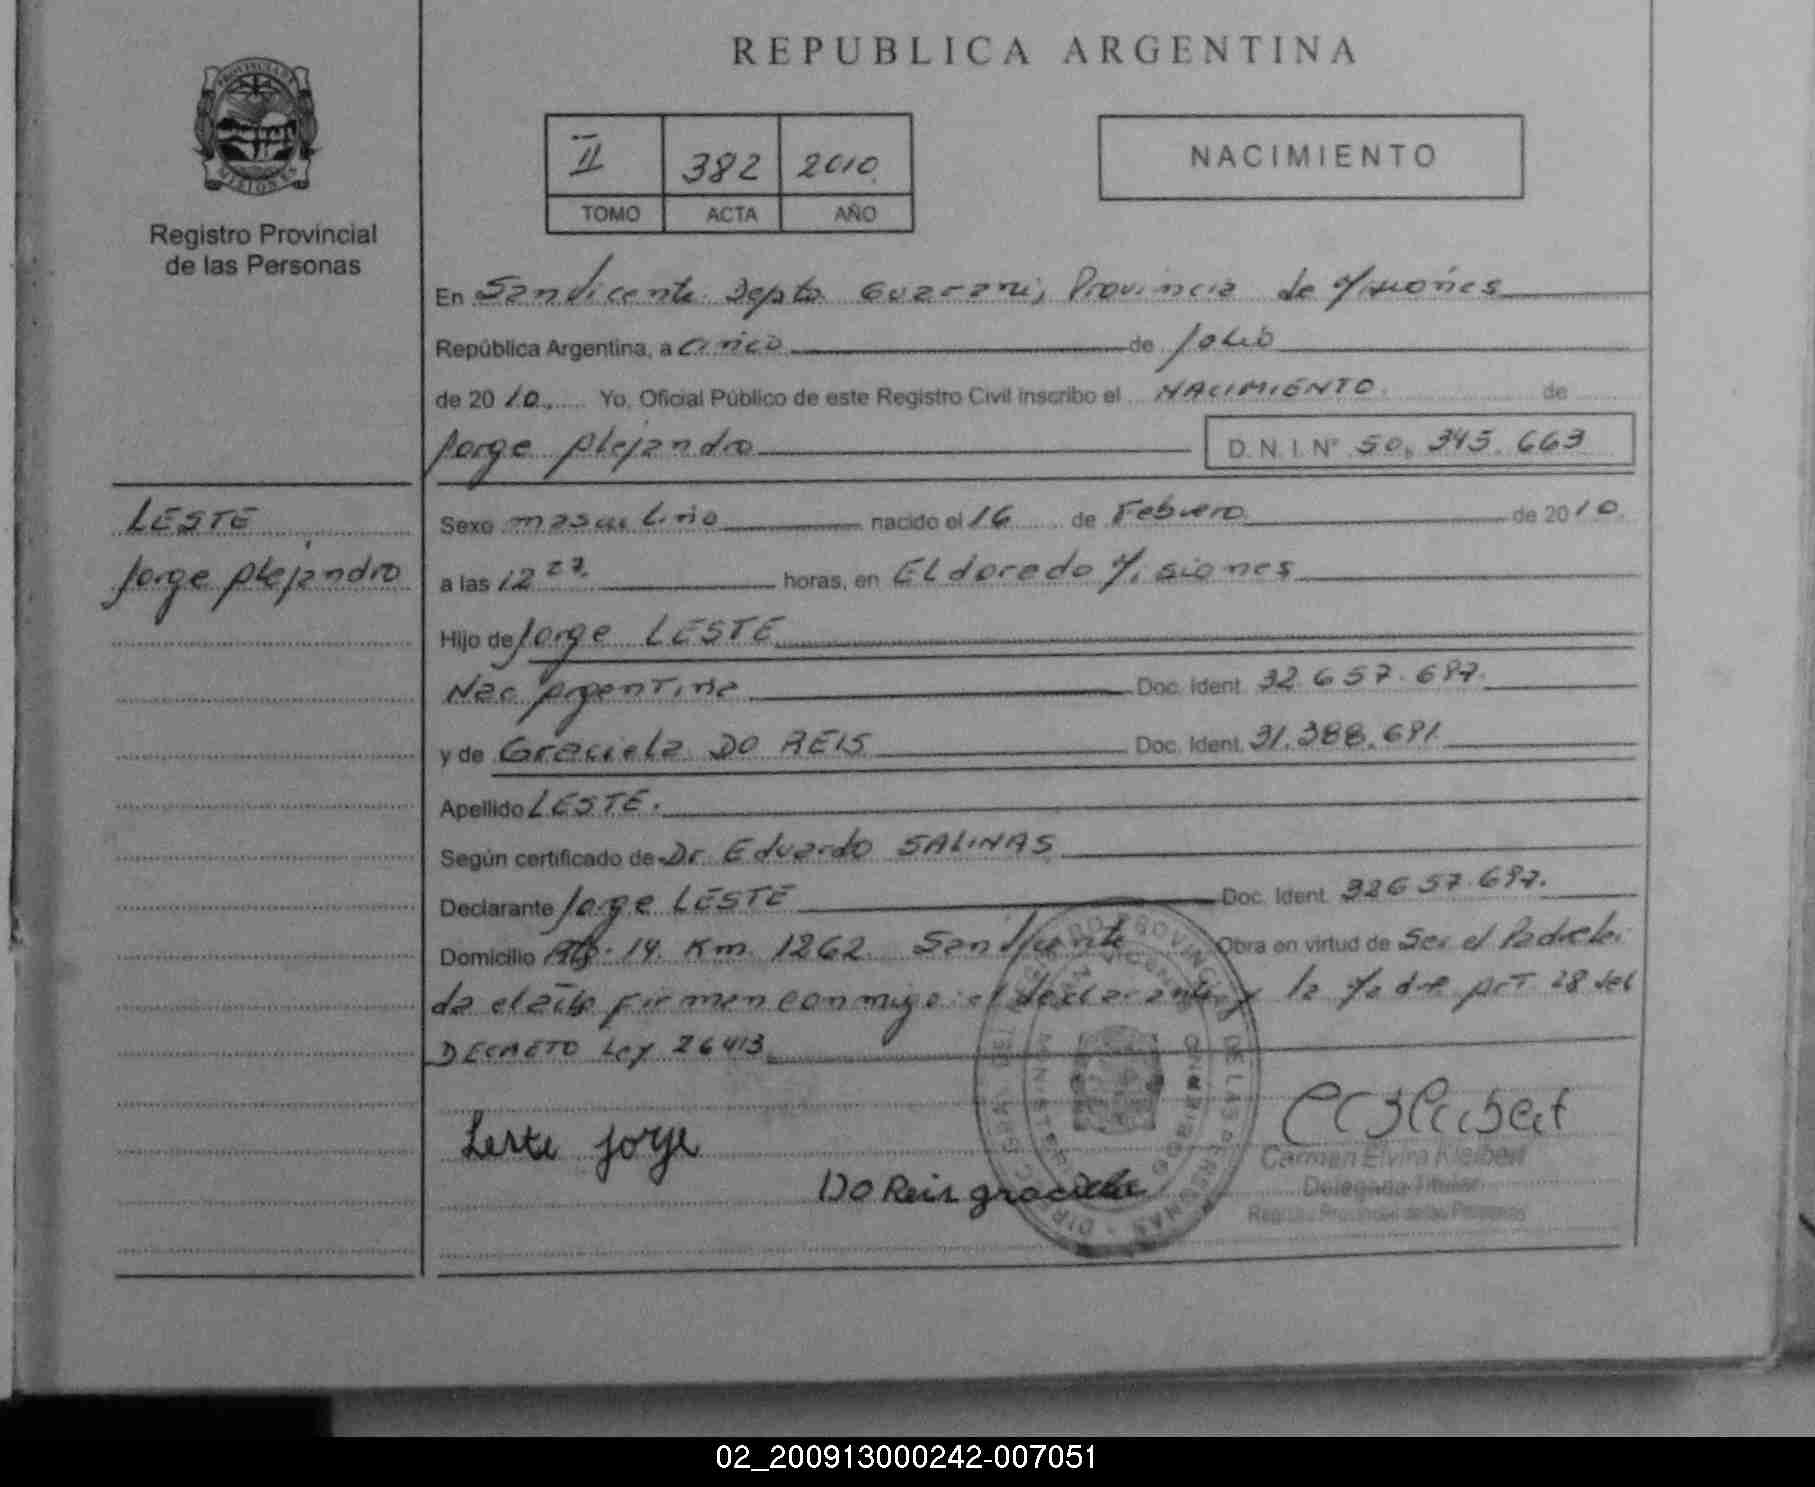 REPUBLICA ARGENTINA
PROVINCIA DE
MISIONES
Registro Provincial
de las Personas
II 382 2010
TOMO ACTA AÑO
NACIMIENTO
En San Vicente Depto Guarani, Provincia de Misiones
República Argentina, a cinco de Julio
de 2010. Yo, Oficial Público de este Registro Civil inscribo el NACIMIENTO de
Jorge Alejandro D.N.I. N° 50.345.663
LESTE
Jorge Alejandro
Sexo masculino nacido el 16 de Febrero de 2010.
a las 12 27 horas, en Eldorado Misiones
Hijo de Jorge LESTE
Nac Argentina Doc. Ident. 32 657.697.
y de Graciela DO REIS Doc. Ident. 31.388.691
Apellido LESTE.
Según certificado de Dr. Eduardo SALINAS
Declarante Jorge LESTE Doc. Ident. 32657.697.
Domicilio 14 Km. 1262 San Vicente Obra en virtud de Ser el Padre lei
da el acta firman conmigo el declarante y la Madre Art 28 del
DECRETO Ley 26413
Leste Jorge
Do Reis graciela
Carmen Elvira Kleibert
Delegada Titular
Registro Provincial de las Personas
02_200913000242-007051